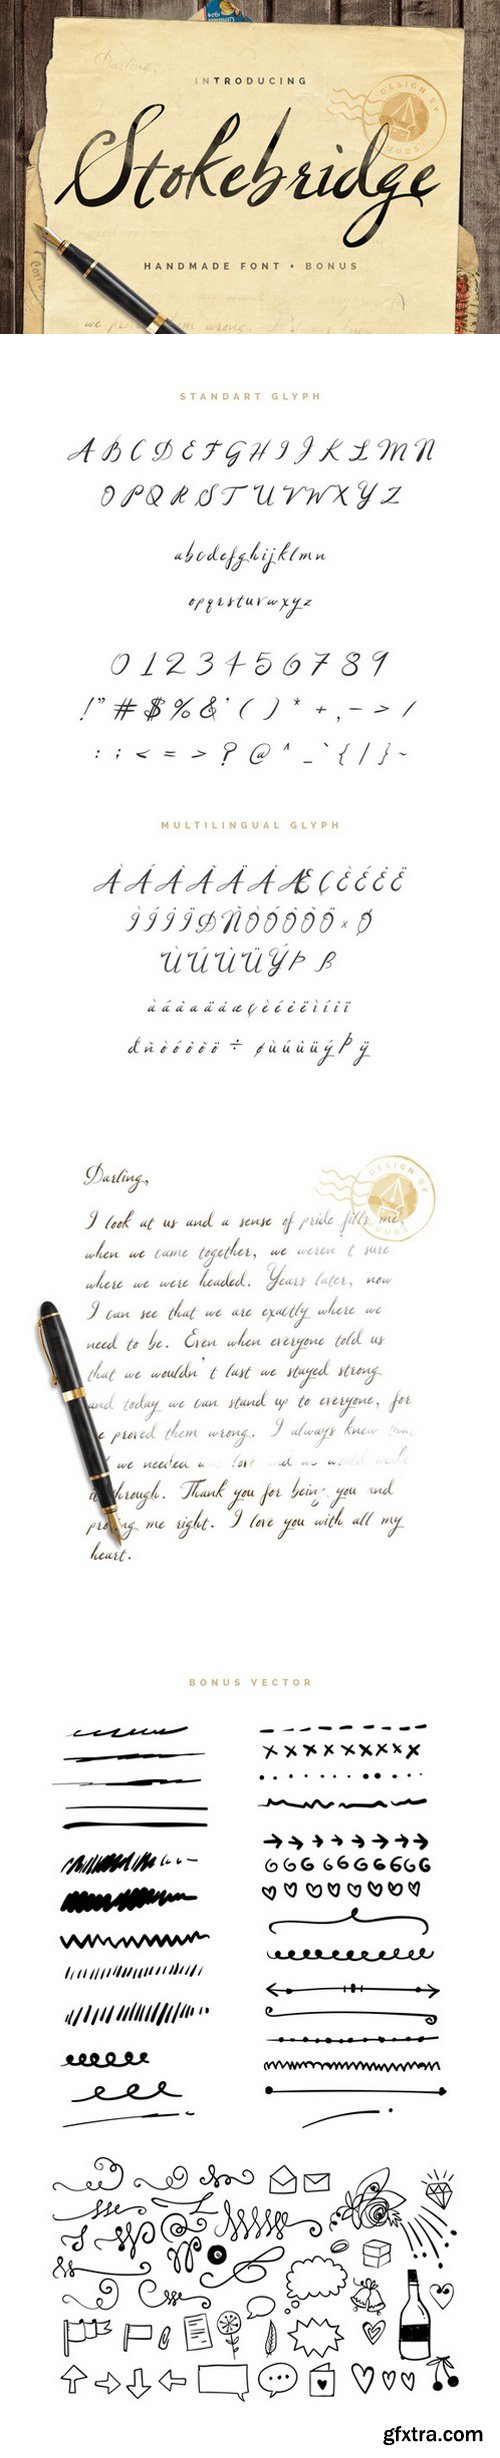 INTRODUCING
Stokebridge
DESIGN BY
UUDS
HANDMADE FONT • BONUS
STANDART GLYPH
A B C D E F G H I J K L M N
O P Q R S T U V W X Y Z
a b c d e f g h i j k l m n
o p q r s t u v w x y z
0 1 2 3 4 5 6 7 8 9
! " # $ % & ' ( ) * + , - > /
: ; < = > ? @ ^ _ ` { | } ~
MULTILINGUAL GLYPH
À Á Â Ã Ä Å Æ Ç È É Ê Ë
Ì Í Î Ï Ð Ñ Ò Ó Ô Õ Ö × Ø
Ù Ú Û Ü Ý Þ ß
à á â ã ä å æ ç è é ê ë ì í î ï
đ ñ ò ó ô õ ö ÷ ø ù ú û ü ý þ ÿ
DESIGN BY
UUDS
Darling,
I look at us and a sense of pride fills me,
when we came together, we weren't sure
where we were headed. Years later, now
I can see that we are exactly where we
need to be. Even when everyone told us
that we wouldn't last we stayed strong
and today we can stand up to everyone, for
we proved them wrong. I always knew that
we needed was love and we would make
it through. Thank you for being you and
proving me right. I love you with all my
heart.
BONUS VECTOR
gfxtra.com